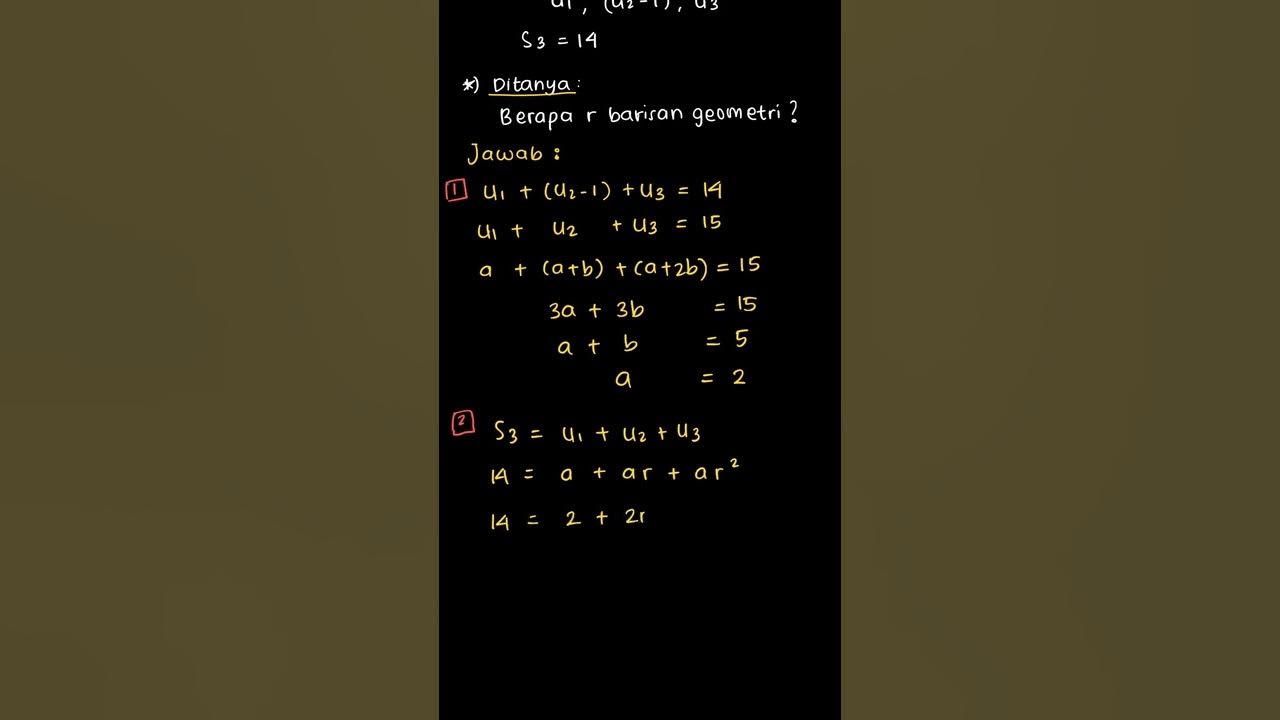 U₁, (U₂-1), U₃
S₃ = 14
*) Ditanya:
Berapa r barisan geometri?
Jawab:
1 U₁ + (U₂-1) + U₃ = 14
U₁ + U₂ + U₃ = 15
a + (a+b) + (a+2b) = 15
3a + 3b = 15
a + b = 5
a = 2
2 S₃ = U₁ + U₂ + U₃
14 = a + ar + ar²
14 = 2 + 2r